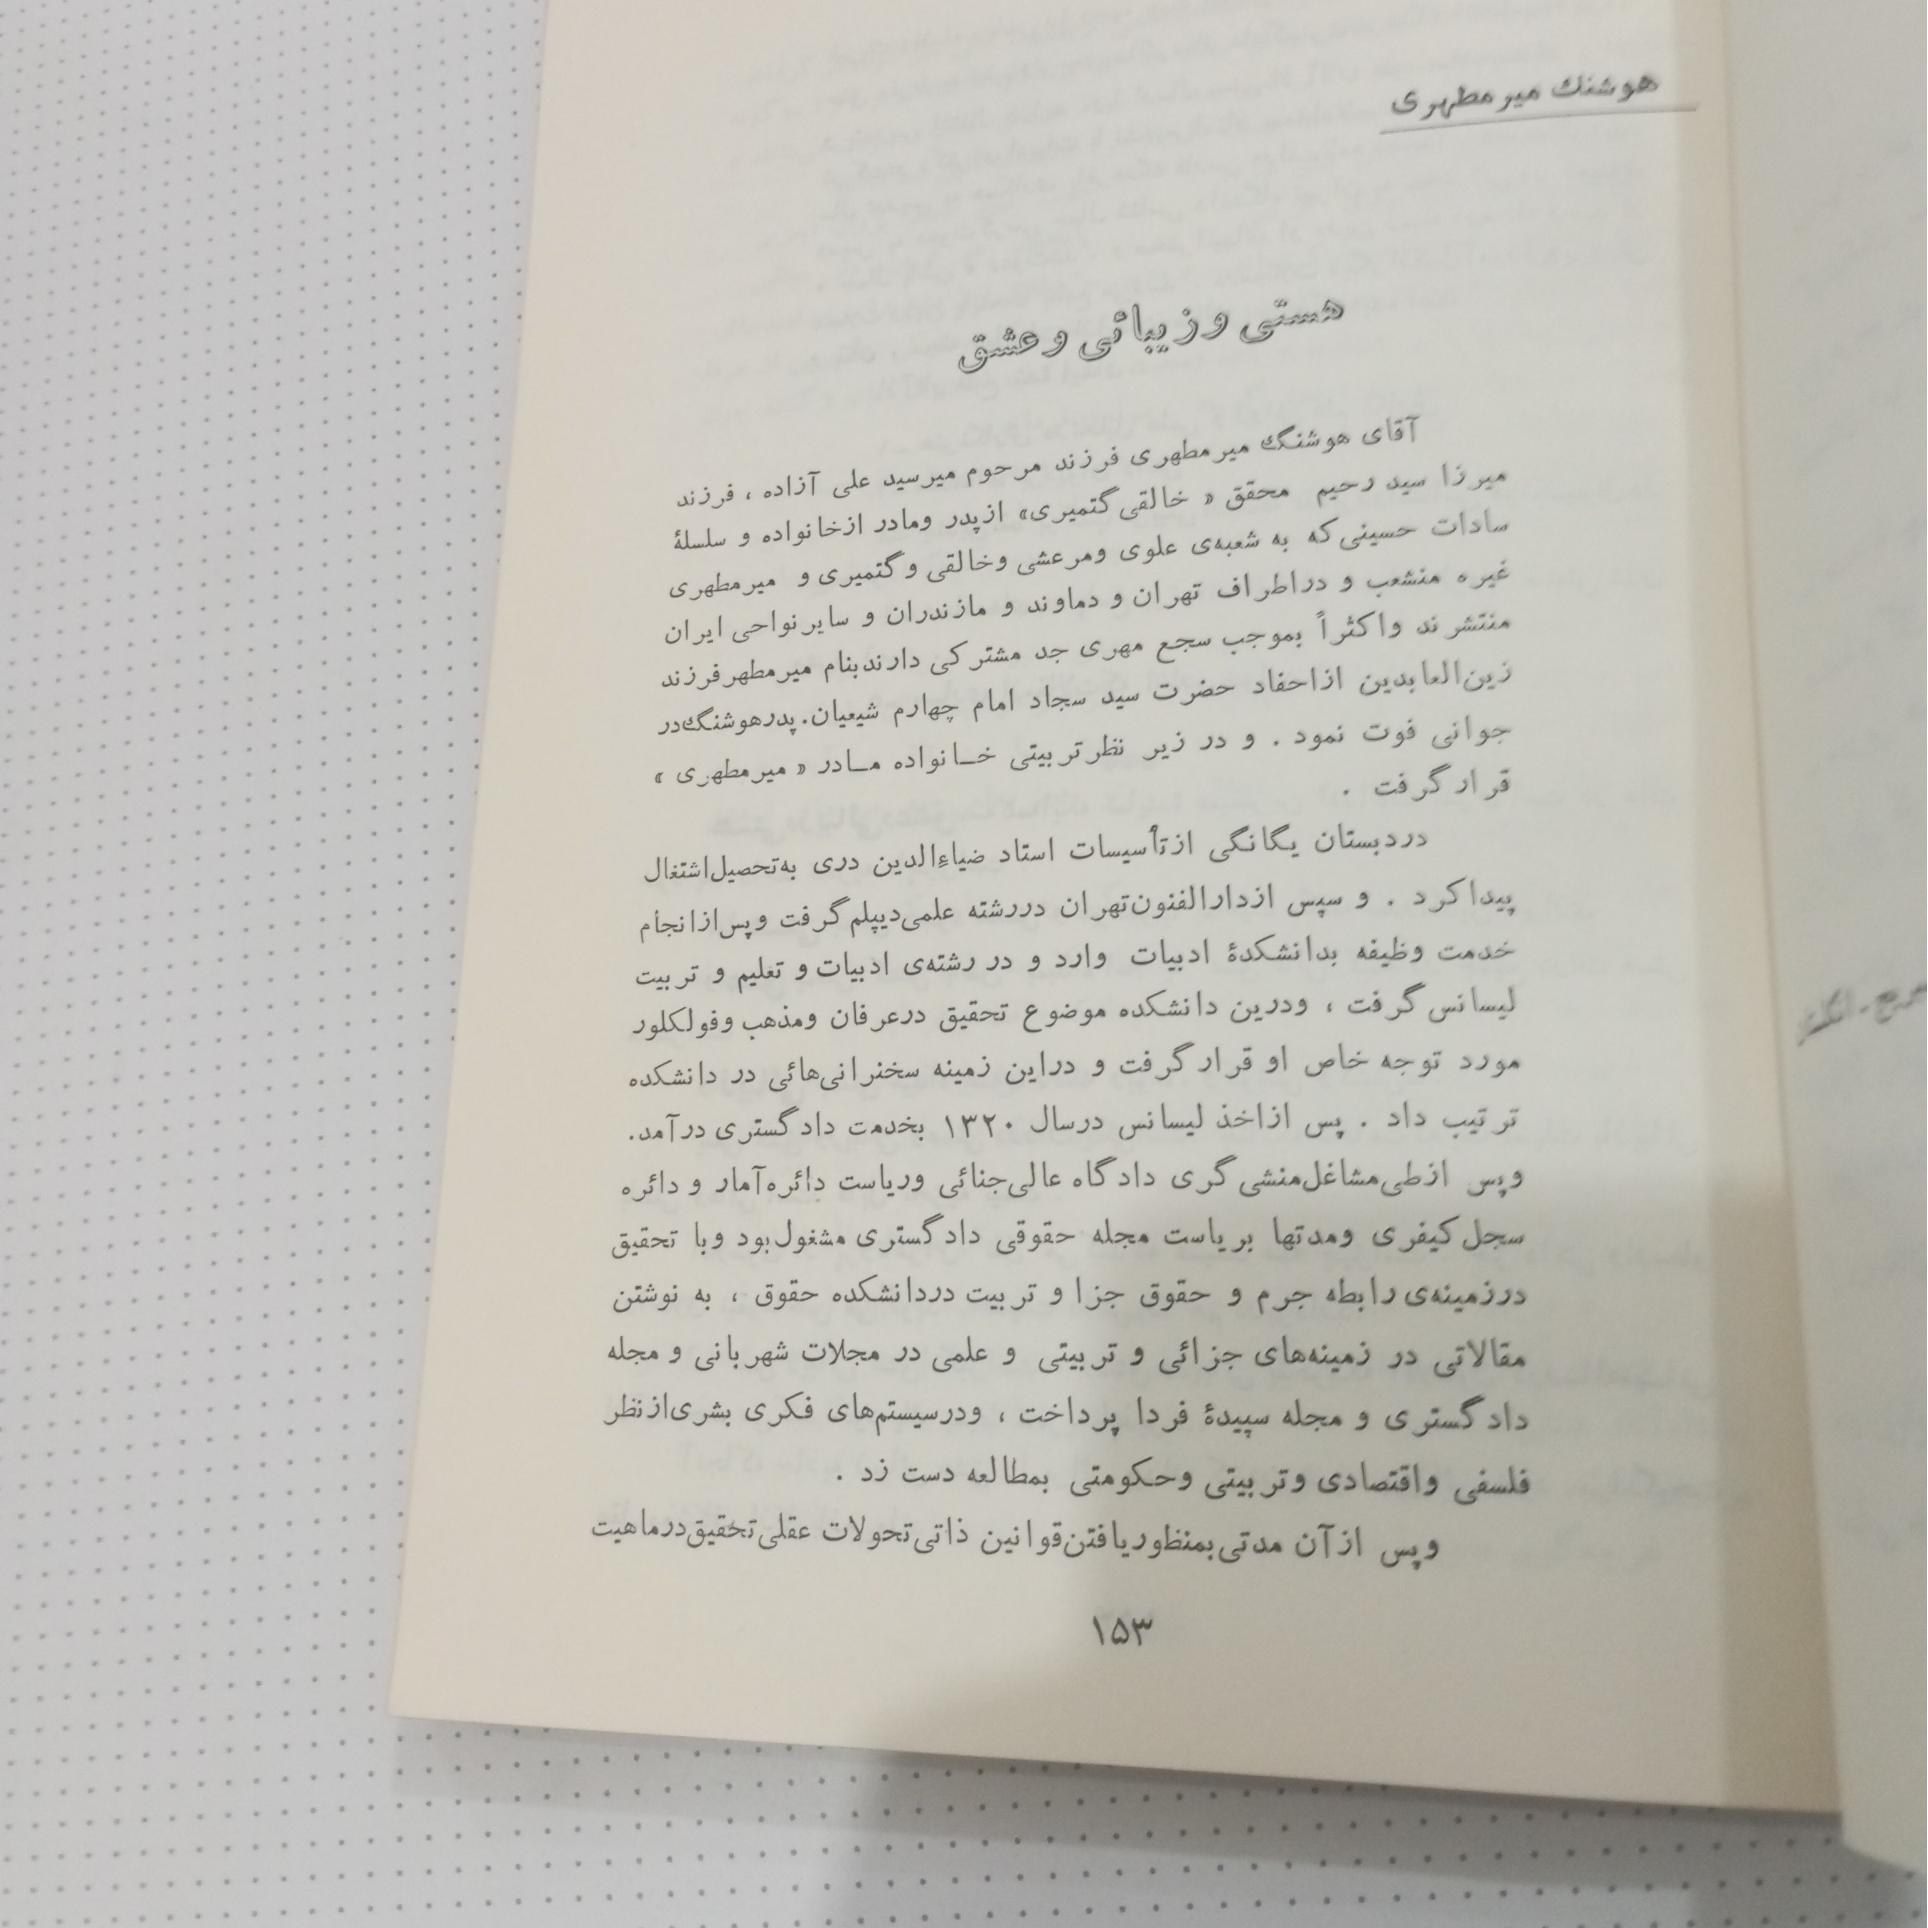 هوشنگ میرمطهری
هستی و زیبائی و عشق
آقای هوشنگ میرمطهری فرزند مرحوم میرسید علی آزاده ، فرزند
میرزا سید رحیم محقق « خالقی گتمیری» از پدر ومادر ازخانواده و سلسلهٔ
سادات حسینی که به شعبه‌ی علوی ومرعشی وخالقی وگتمیری و میرمطهری
غیره منشعب و دراطراف تهران و دماوند و مازندران و سایر نواحی ایران
منتشرند واکثراً بموجب سجع مهری جد مشترکی دارند بنام میرمطهر فرزند
زین‌العابدین ازاحفاد حضرت سید سجاد امام چهارم شیعیان. پدرهوشنگ در
جوانی فوت نمود . و در زیر نظر تربیتی خـانواده مـادر « میرمطهری »
قرار گرفت .
دردبستان یگانگی ازتأسیسات استاد ضیاءالدین دری به تحصیل اشتغال
پیدا کرد . و سپس ازدارالفنون تهران دررشته علمی دیپلم گرفت وپس ازانجام
خدمت وظیفه بدانشکدهٔ ادبیات وارد و در رشته‌ی ادبیات و تعلیم و تربیت
لیسانس گرفت ، ودرین دانشکده موضوع تحقیق درعرفان ومذهب وفولکلور
مورد توجه خاص او قرار گرفت و دراین زمینه سخنرانی‌هائی در دانشکده
ترتیب داد . پس ازاخذ لیسانس درسال ۱۳۲۰ بخدمت دادگستری درآمد.
وپس ازطی مشاغل منشی گری دادگاه عالی جنائی وریاست دائره آمار و دائره
سجل کیفری ومدتها بریاست مجله حقوقی دادگستری مشغول بود وبا تحقیق
درزمینه‌ی رابطه جرم و حقوق جزا و تربیت دردانشکده حقوق ، به نوشتن
مقالاتی در زمینه‌های جزائی و تربیتی و علمی در مجلات شهربانی و مجله
دادگستری و مجله سپیدهٔ فردا پرداخت ، ودرسیستم‌های فکری بشری ازنظر
فلسفی واقتصادی وتربیتی وحکومتی بمطالعه دست زد .
وپس ازآن مدتی بمنظور یافتن قوانین ذاتی تحولات عقلی تحقیق درماهیت
۱۵۳